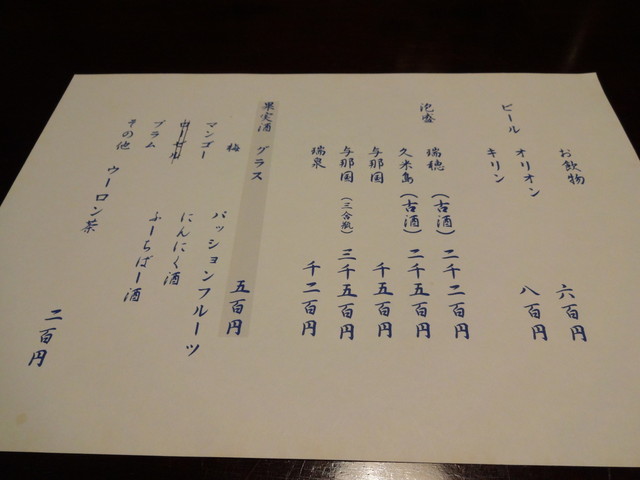 お飲物
ビール
オリオン 六百円
キリン 八百円
泡盛
瑞穂 (古酒) 二千二百円
久米島 (古酒) 二千五百円
与那国 千五百円
与那国 (三合瓶) 三千五百円
瑞泉 千二百円
果実酒 グラス
梅 五百円
マンゴー パッションフルーツ
ローゼル にんにく酒
プラム ふーちばー酒
その他
ウーロン茶 二百円